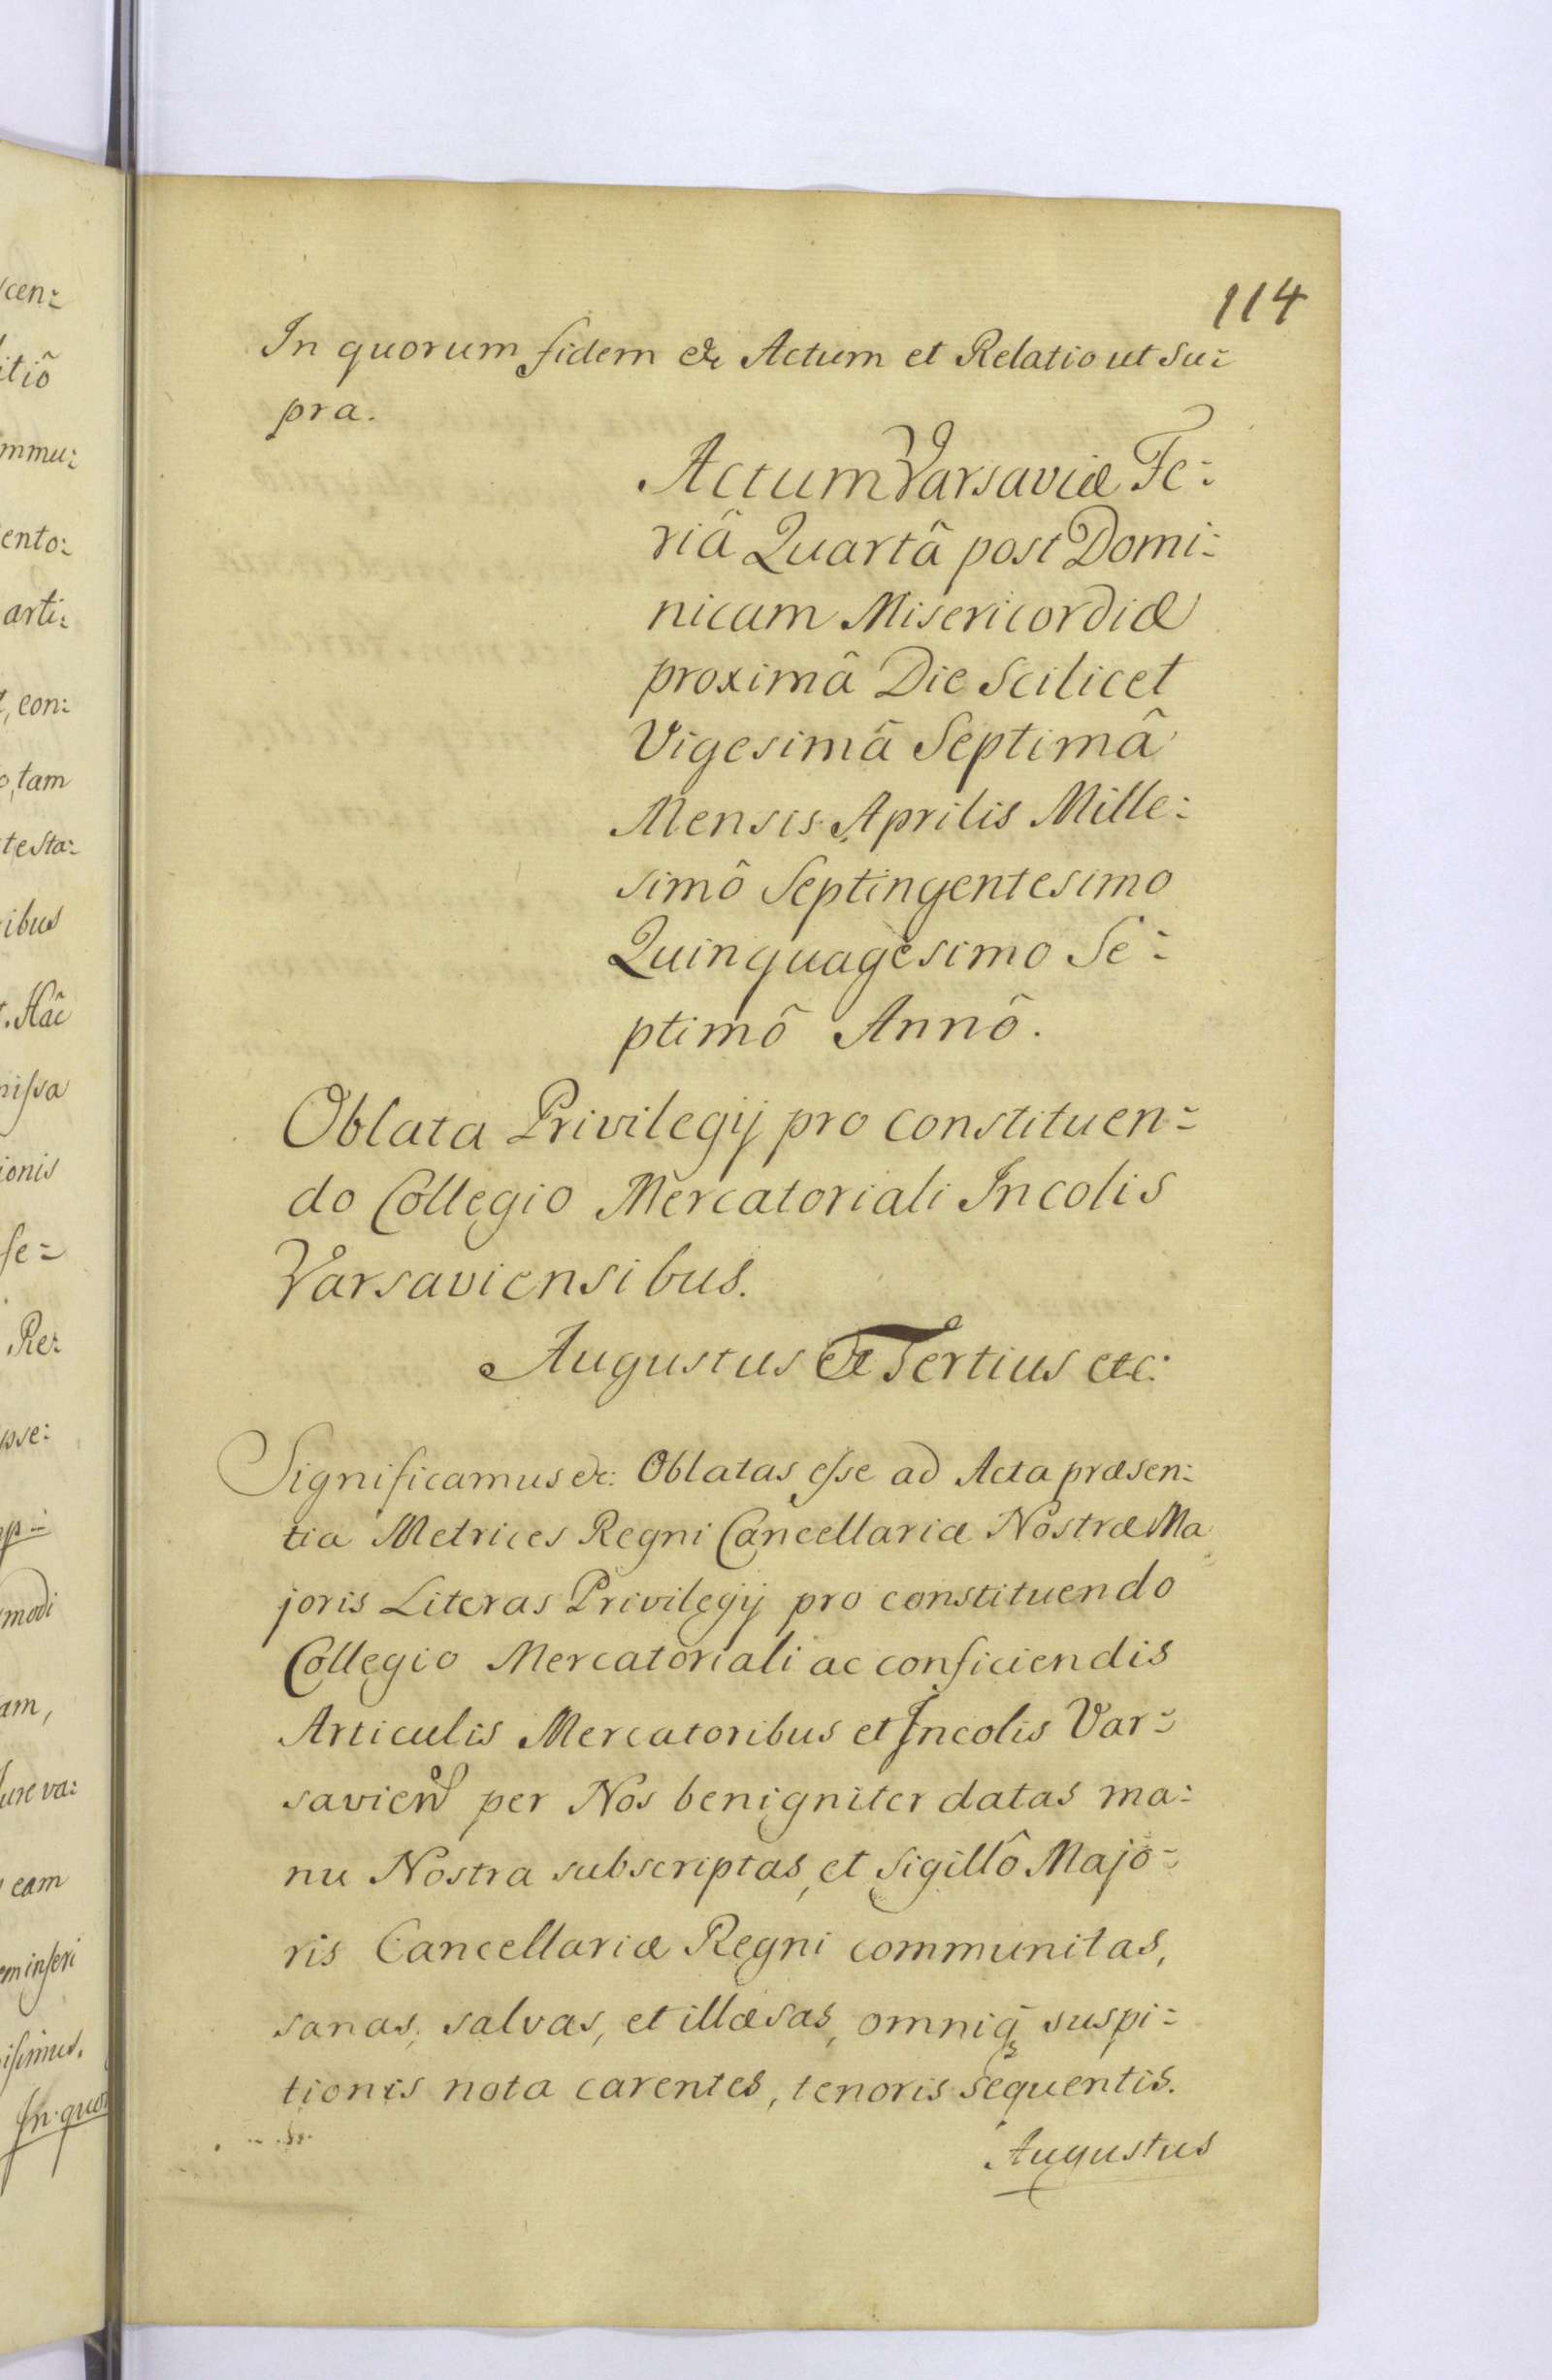 114
In quorum fidem &c Actum et Relatio ut su=
pra.
Actum Varsaviæ Fe=
riâ Quartâ post Domi=
nicam Misericordiæ
proximâ Die Scilicet
Vigesimâ Septimâ
Mensis Aprilis Mille=
simô Septingentesimo
Quinquagesimo Se=
ptimô Annô.
Oblata Privilegij pro constituen=
do Collegio Mercatoriali Incolis
Varsaviensibus.
Augustus Tertius etc:
Significamus &c: Oblatas esse ad Acta præsen=
tia Metrices Regni Cancellariæ Nostræ Ma
joris Literas Privilegij pro constituendo
Collegio Mercatoriali ac conficiendis
Articulis Mercatoribus et Incolis Var=
savien per Nos benigniter datas ma=
nu Nostra subscriptas, et Sigillô Majo=
ris Cancellariæ Regni communitas,
sanas, salvas, et illæsas, omniq suspi=
tionis nota carentes, tenoris sequentis.
Augustus
cen=
itiô
mmu=
ento=
arti=
con=
tam
testa=
ibus
Hâc
issa
ionis
se=
Re=
pse=
modi
am,
eam
inseri
In quor